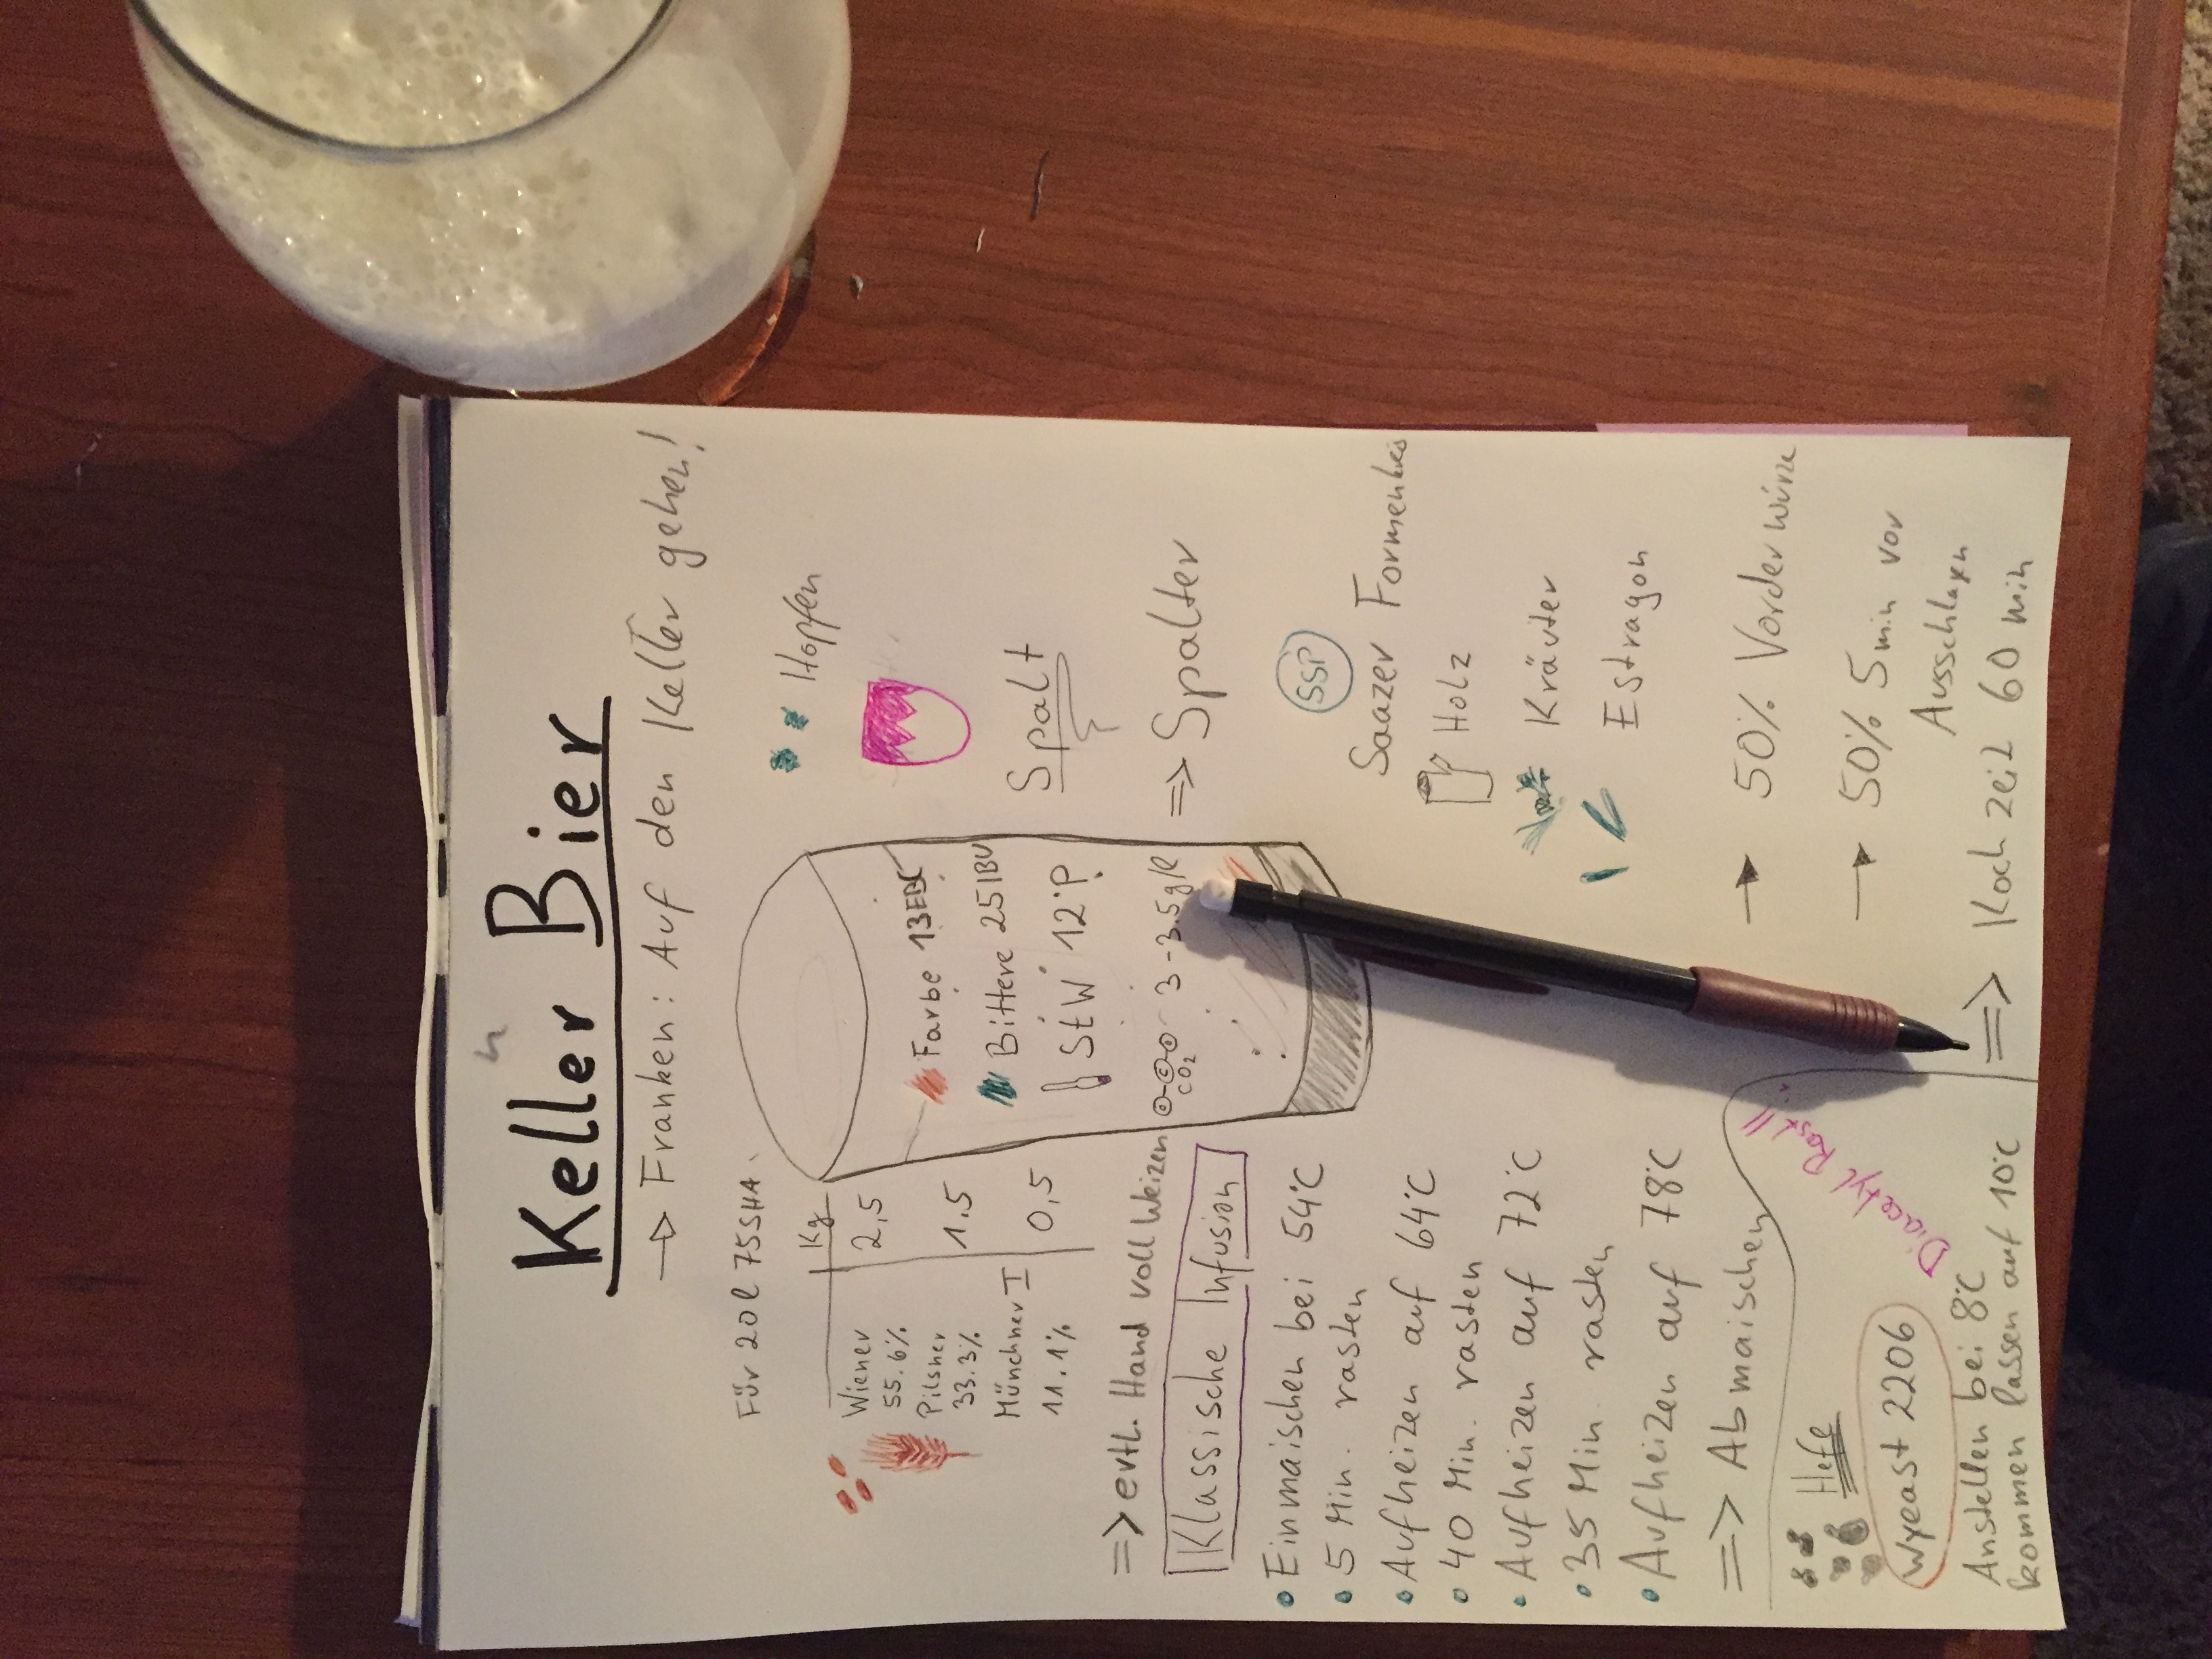 Keller Bier
→ Franken: Auf den Keller gehen!
Für 20l 75SHA
Kg
Wiener 2,5
55.6%
Pilsner 1,5
33.3%
Münchner I 0,5
11.1%
=> evtl. Hand voll Weizen
Farbe 13EBC
Bittere 25IBU
StW 12°P
O-C-O 3-3.5g/l
CO2
Hopfen
Spalt
=> Spalter
SSP
Saazer Formenkreis
Holz
Kräuter
Estragon
→ 50% Vorderwürze
→ 50% 5min vor
Ausschlagen
=> Kochzeit 60 min
Klassische Infusion
• Einmaischen bei 54°C
• 5 Min. rasten
• Aufheizen auf 64°C
• 40 Min. rasten
• Aufheizen auf 72°C
• 35 Min. rasten
• Aufheizen auf 78°C
=> Abmaischen
Hefe
Wyeast 2206
Diacetyl Rast!!
Anstellen bei 8°C
kommen lassen auf 10°C